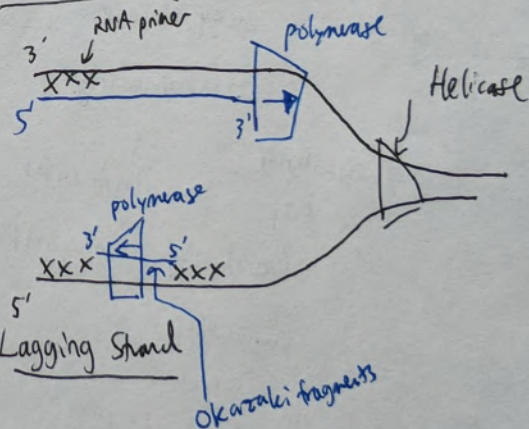 RNA primer
polymerase
3'
XXX
5'
3'
Helicase
polymerase
3'
5'
XXX
XXX
5'
Lagging Strand
Okazaki fragments